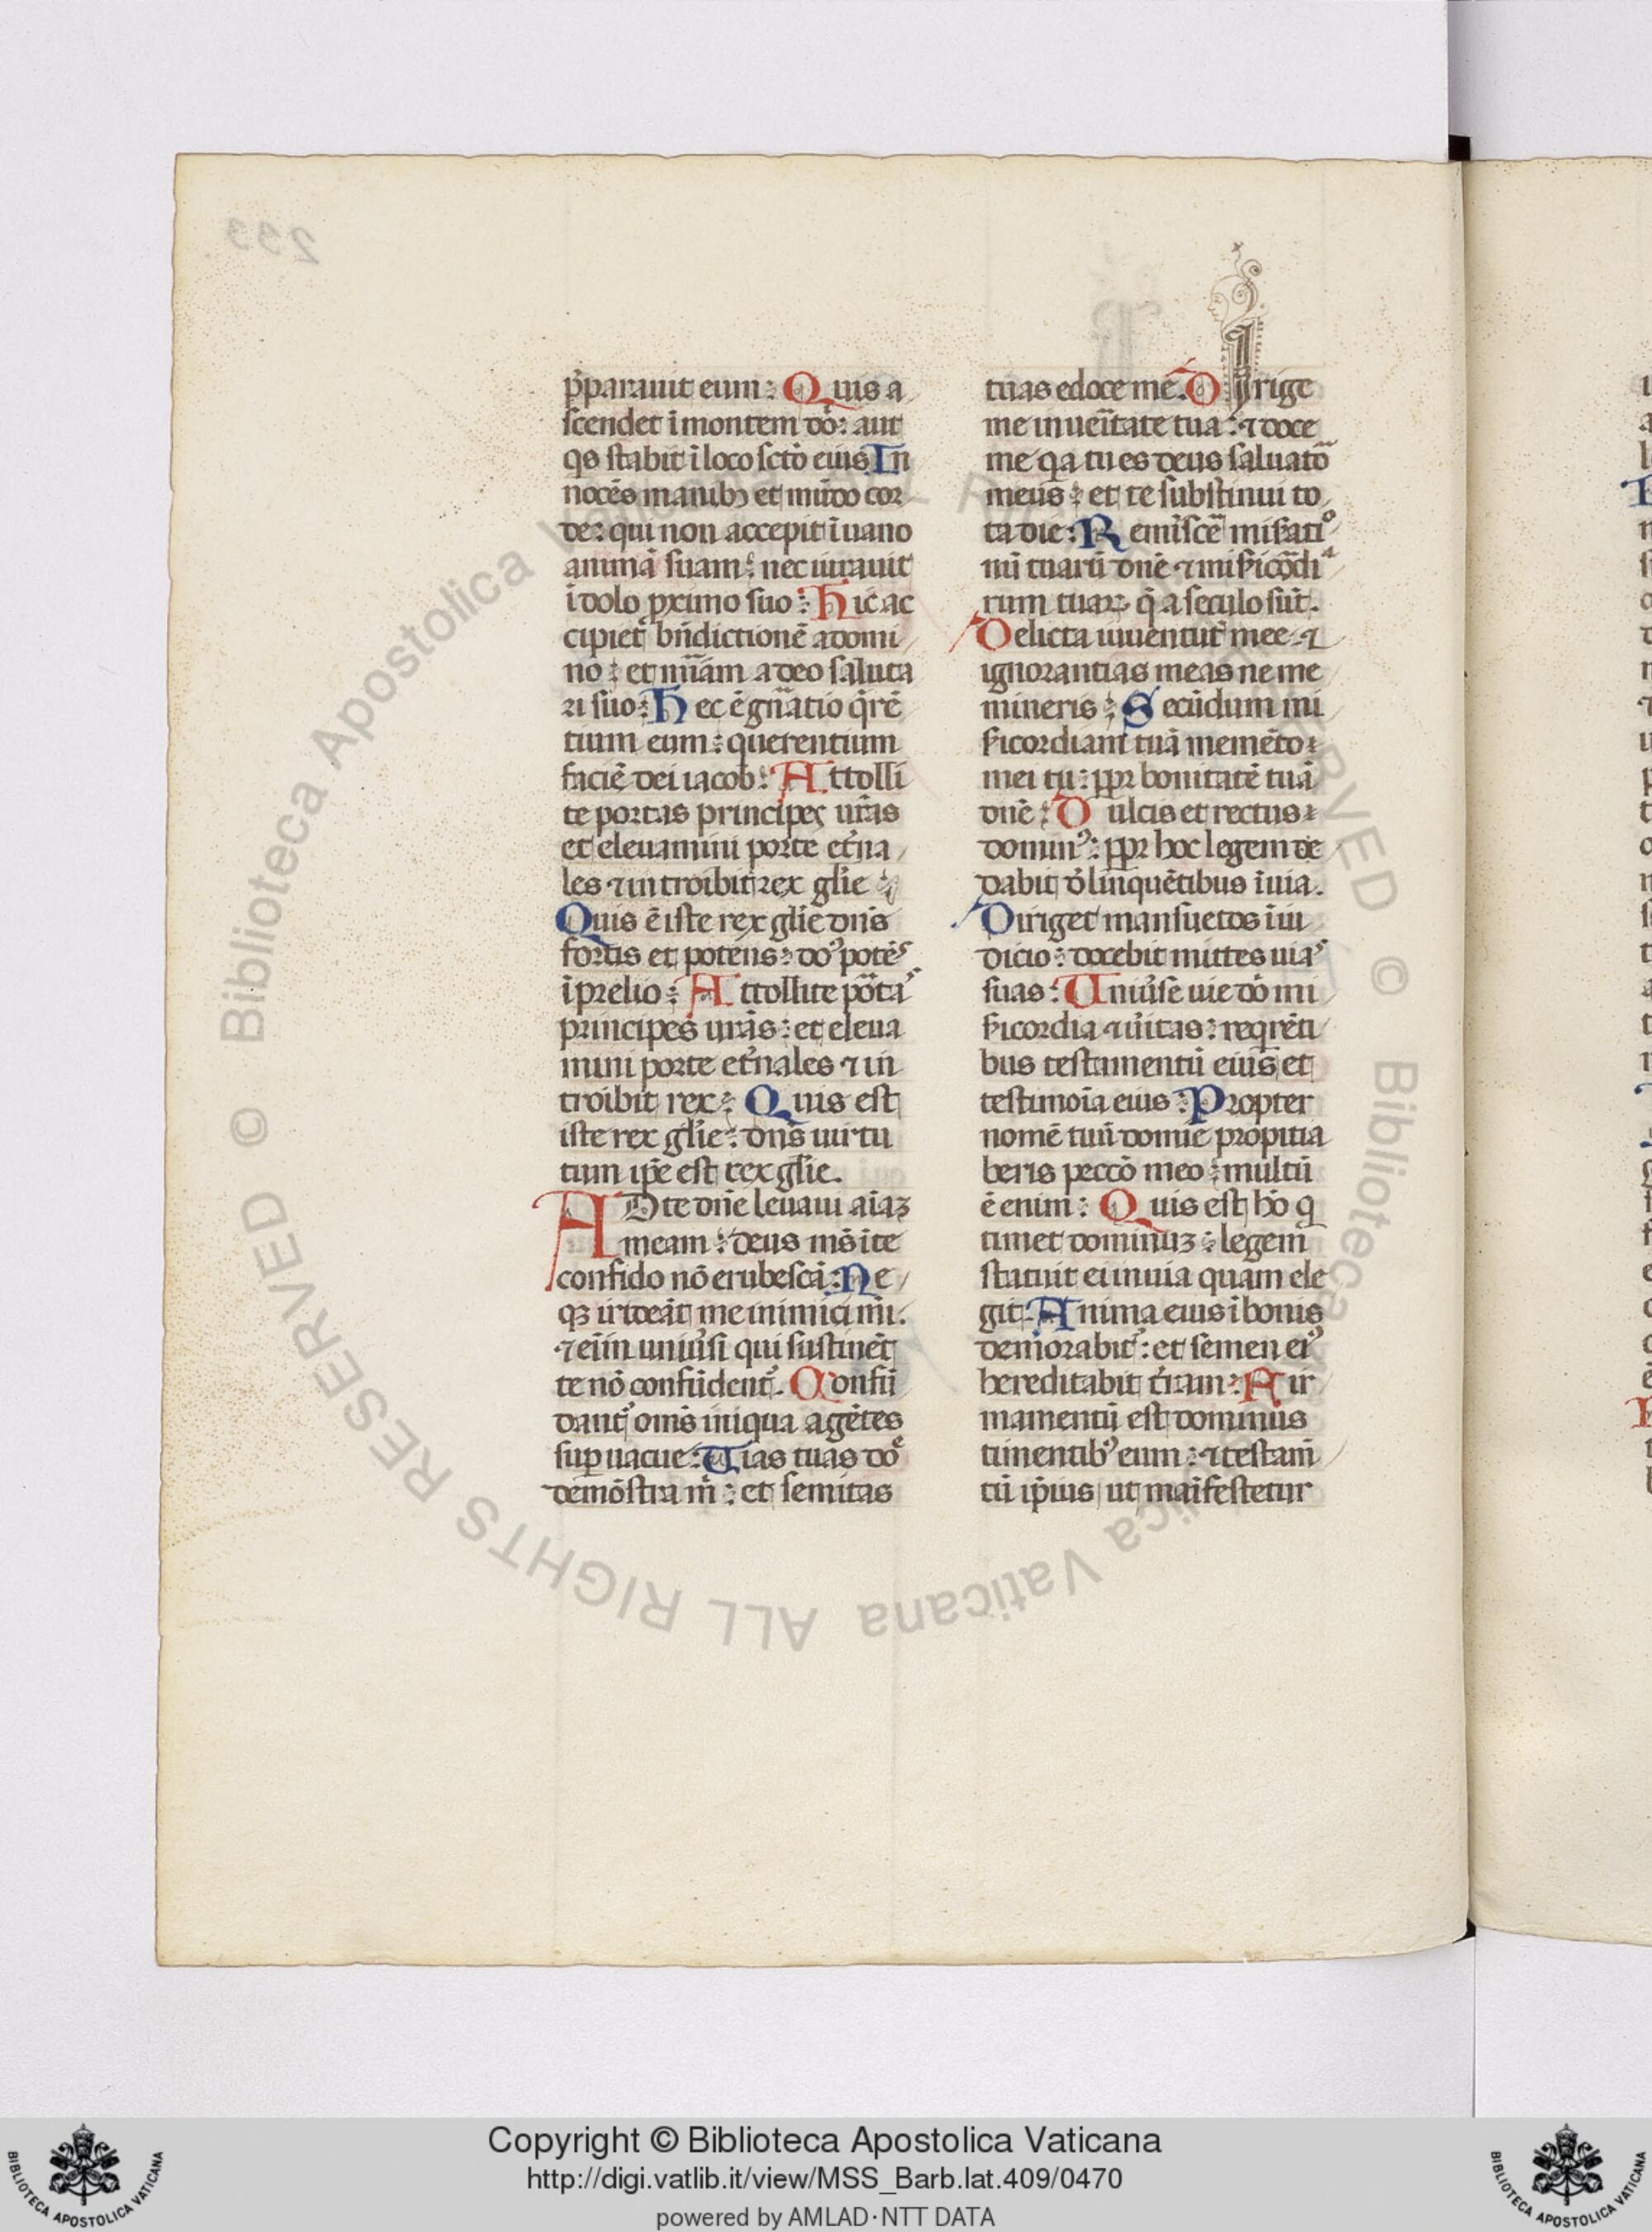 p̄parauit eum: Quis a
scendet ī montem dō: aut
qͥs stabit ī loco scō eius In
nocēs manibꝫ et mūdo cor
de: qui non accepit ī uano
animā suam: nec iurauit
ī dolo ꝓximo suo: Hic ac
cipiet bn̄dictionē a domi
no: et mīam a deo saluta
ri suo: Hec ē gn̄atio q̄rē
tium eum: querentium
faciē dei iacob: Attolli
te portas principes urās
et eleuamini porte et̄na
les ⁊ introibit rex glīe
Quis ē iste rex glīe dn̄s
fortis et potens: doꝰ potēs
ī prelio: Attollite pōtas
principes urās: et eleua
mini porte et̄nales ⁊ in
troibit rex: Quis est
iste rex glīe: dn̄s uirtu
tum ip̄e est rex glīe.
AD te dn̄e leuaui aīaꝫ
meam: deus ms̄ ī te
confido nō erubescā: Ne
qꝫ irrideāt me inimici mī.
⁊ eīm uniūsi qui sustinēt
te nō confūdent̄. Confū
dant̄ omīs iniqua agētes
suꝑuacue: Uias tuas dōe
demōstra m̄: et semitas
tuas edoce me. Dirige
me in ueritate tua: ⁊ doce
me qa tu es deus saluato
meus: et te substinui to
ta die: Reminiscē misatio
nū tuarū dn̄e ⁊ misicōdia
rum tuaꝝ q̄ a seculo sūt.
Delicta iuuentut̄ mee ⁊
ignorantias meas ne me
mineris: Secūdum mi
sicordiam tuā memēto
mei tu: ꝓpr bonitatē tuā
dn̄e: Dulcis et rectus
dominꝰ: ꝓpr hoc legem de
dabit d̄linquētibus ī uia.
Diriget mansuetos ī iu
dicio: docebit mittes uias
suas: Uniūse uie dō mi
sicordia ⁊ ūitas: reqrēti
bus testamentū eius et
testimoīa eius: Propter
nomē tuū domīe propitia
beris peccō meo: multū
ē enim: Quis est hō q
timet dominuꝫ: legem
statuit ei in uia quam ele
git: Anima eius ī bonis
demorabit̄: et semen eiꝰ
hereditabit t̄ram: Fir
mamentū est dominus
timentibꝰ eum: ⁊ testam̄
tū ip̄ius ut manīfestetur
233
Copyright © Biblioteca Apostolica Vaticana
http://digi.vatlib.it/view/MSS_Barb.lat.409/0470
powered by AMLAD·NTT DATA
BIBLIOTECA APOSTOLICA VATICANA
BIBLIOTECA APOSTOLICA VATICANA
© Biblioteca Apostolica Vaticana ALL RIGHTS RESERVED © Biblioteca Apostolica Vaticana ALL RIGHTS RESERVED